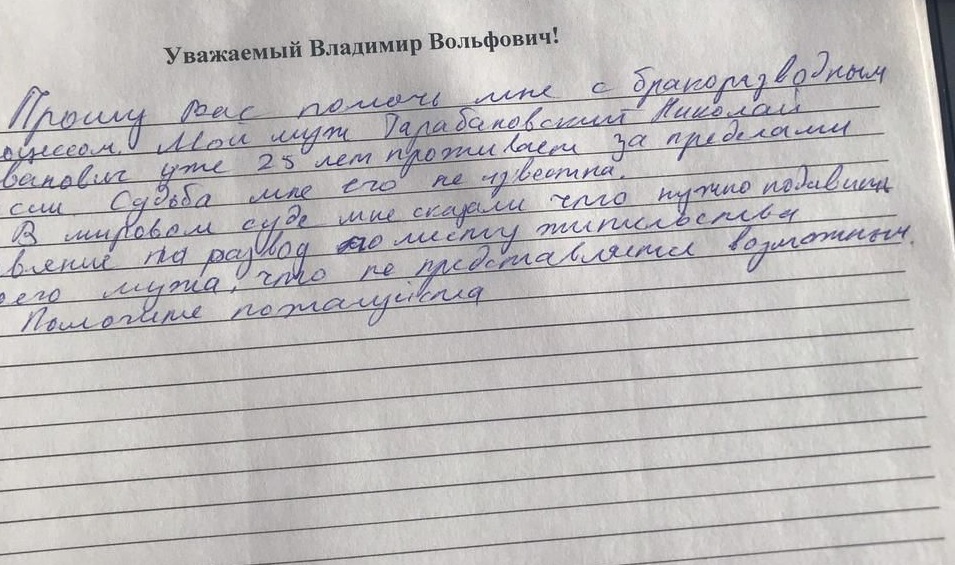 Уважаемый Владимир Вольфович!
Прошу Вас помочь мне с бракоразводным
оцессом. Мой муж Тарабановский Николай
ванович уже 25 лет проживает за пределами
сии. Судьба мне его не известна.
В мировом суде мне сказали что нужно подавать
вление на развод по месту жительства
оего мужа, что не представляется возможным.
Помогите пожалуйста